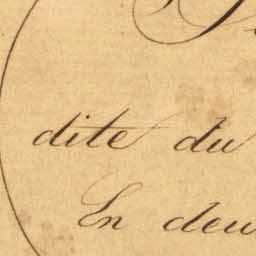 dite du
En deu